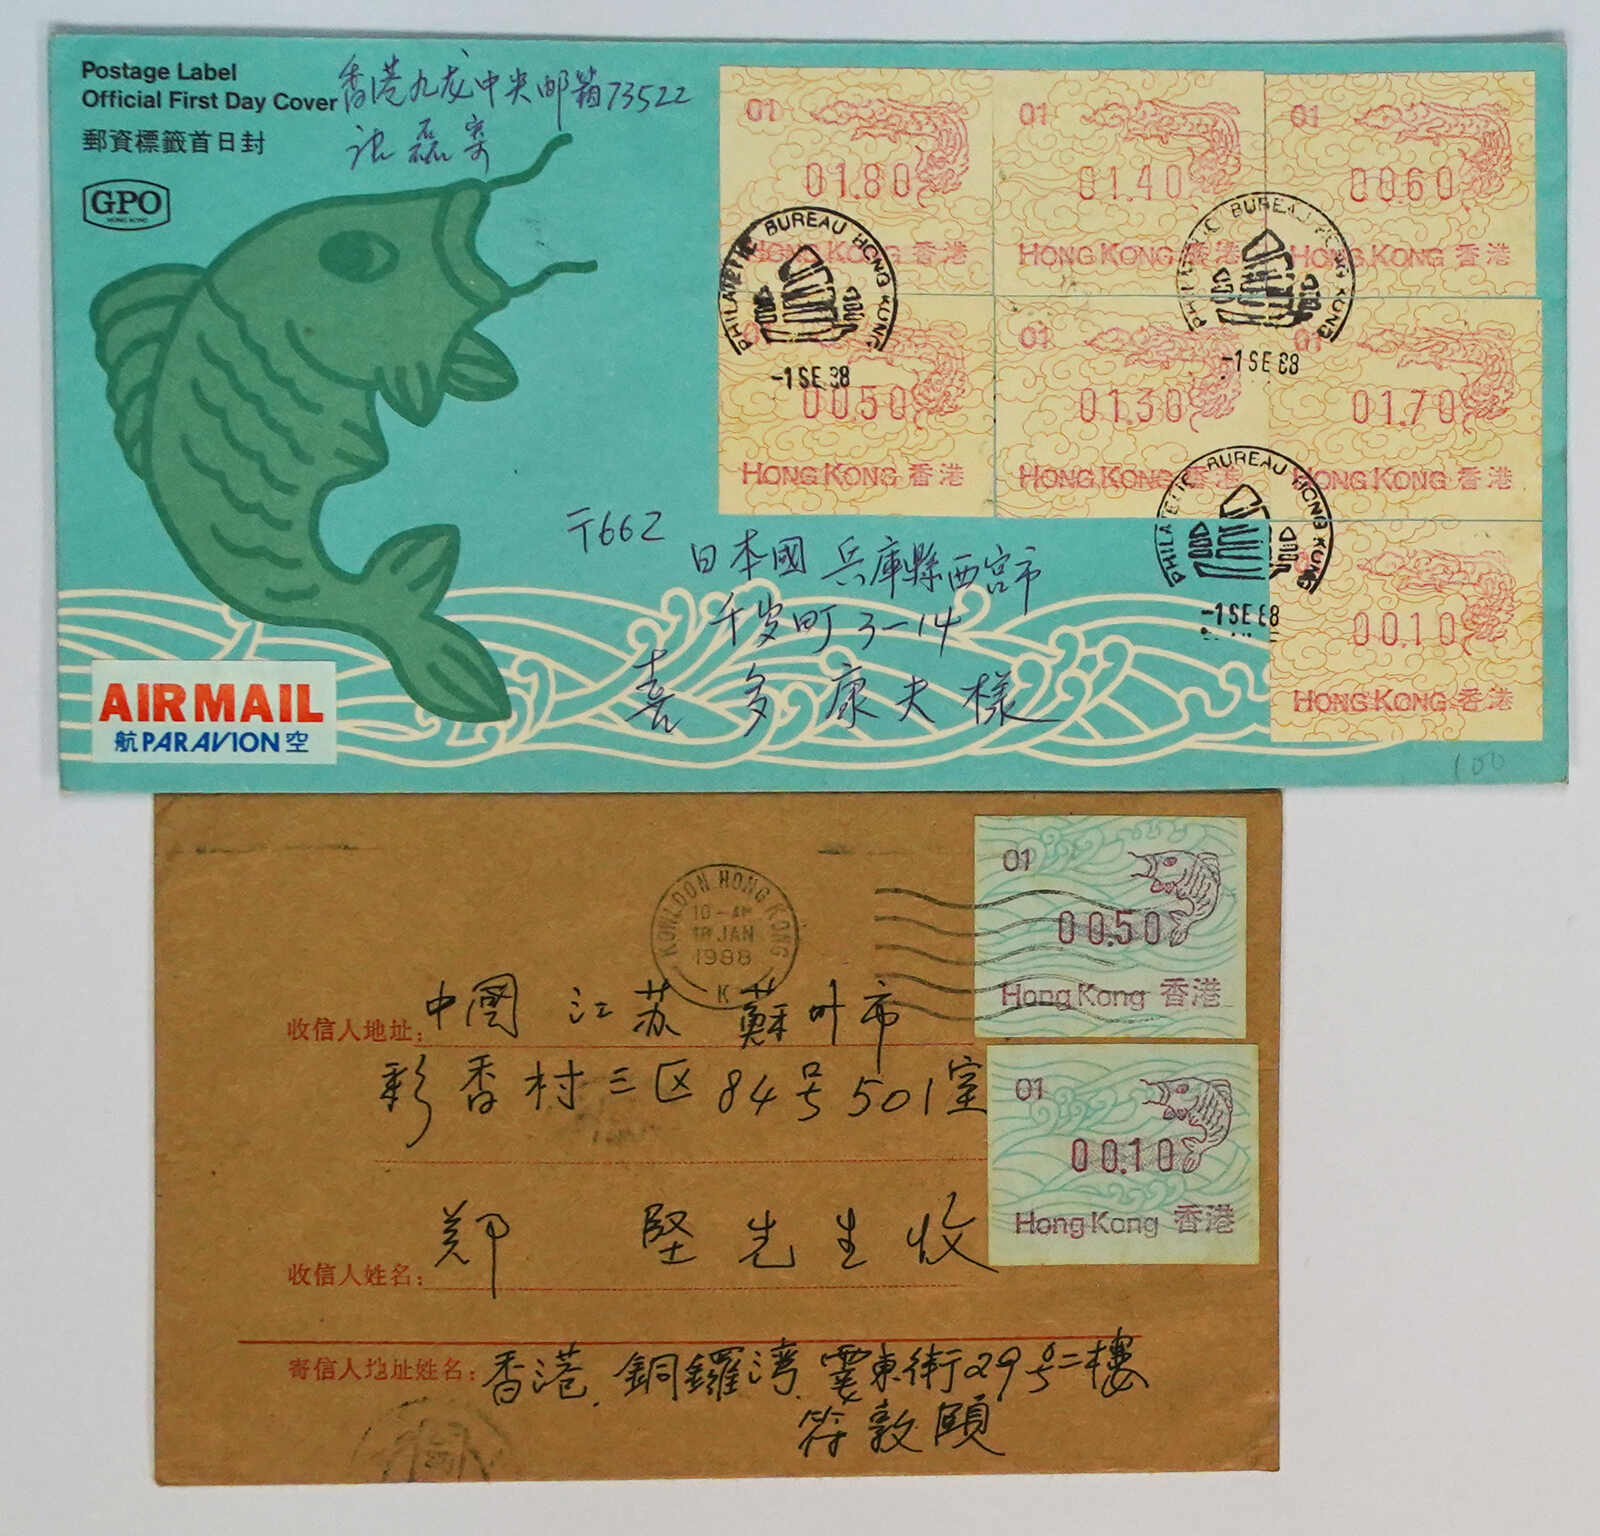 Postage Label
Official First Day Cover
郵資標籤首日封
GPO
HONG KONG
香港九龙中央邮箱73522
沈磊寄
01
01.80
HONG KONG 香港
01
01.40
HONG KONG 香港
01
00.60
HONG KONG 香港
PHILATELIC BUREAU HONG KONG
-1 SE 88
PHILATELIC BUREAU HONG KONG
-1 SE 88
00.50
HONG KONG 香港
01
01.30
HONG KONG 香港
01
01.70
HONG KONG 香港
PHILATELIC BUREAU HONG KONG
-1 SE 88
00.10
HONG KONG 香港
〒662
日本國 兵庫縣西宮市
千岁町3-14
喜多康夫様
AIR MAIL
航 PAR AVION 空
100
KOWLOON HONG KONG
10-AM
18 JAN
1988
K
01
00.50
Hong Kong 香港
01
00.10
Hong Kong 香港
收信人地址: 中國 江苏 蘇州市
彩香村三区84号501室
收信人姓名: 郑 堅先生收
寄信人地址姓名: 香港.銅鑼湾.霎東街29号二樓
符敦頤